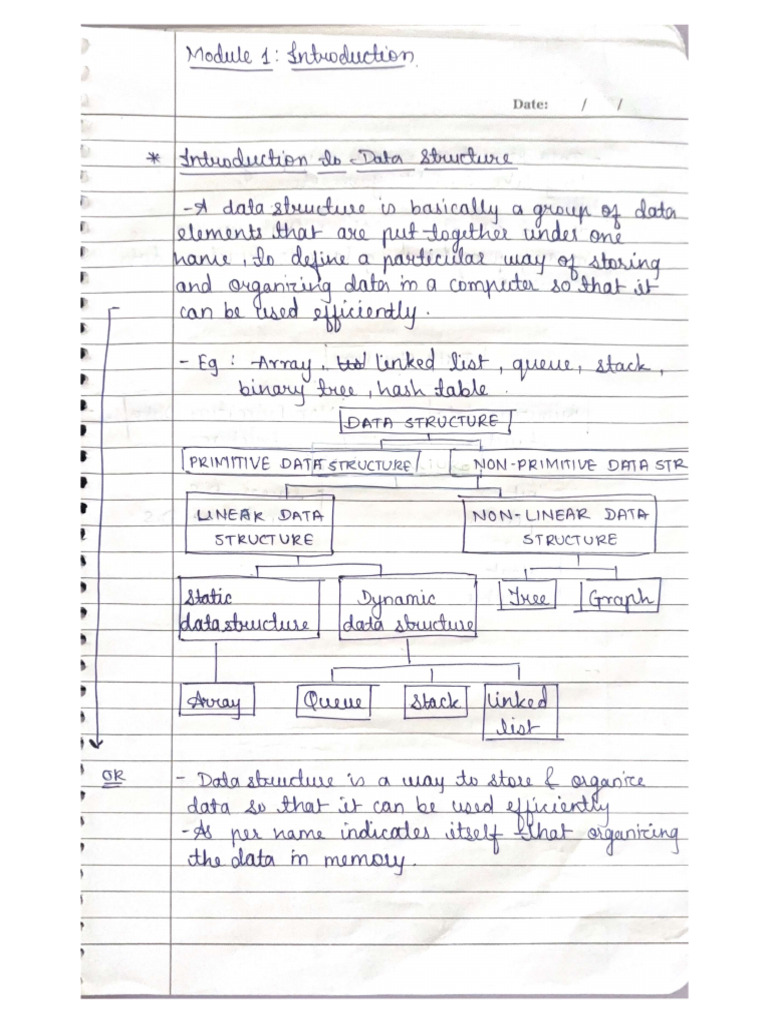 Module 1: Introduction
Date: / /
* Introduction to Data Structure
- A data structure is basically a group of data
elements that are put together under one
name, to define a particular way of storing
and organizing data in a computer so that it
can be used efficiently.
- Eg: Array, linked list, queue, stack,
binary tree, hash table.
DATA STRUCTURE
PRIMITIVE DATA STRUCTURE NON-PRIMITIVE DATA STR
LINEAR DATA NON-LINEAR DATA
STRUCTURE STRUCTURE
Static Dynamic Tree Graph
data structure data structure
Array Queue Stack linked
list
OR - Data structure is a way to store & organize
data so that it can be used efficiently
- As per name indicates itself that organizing
the data in memory.